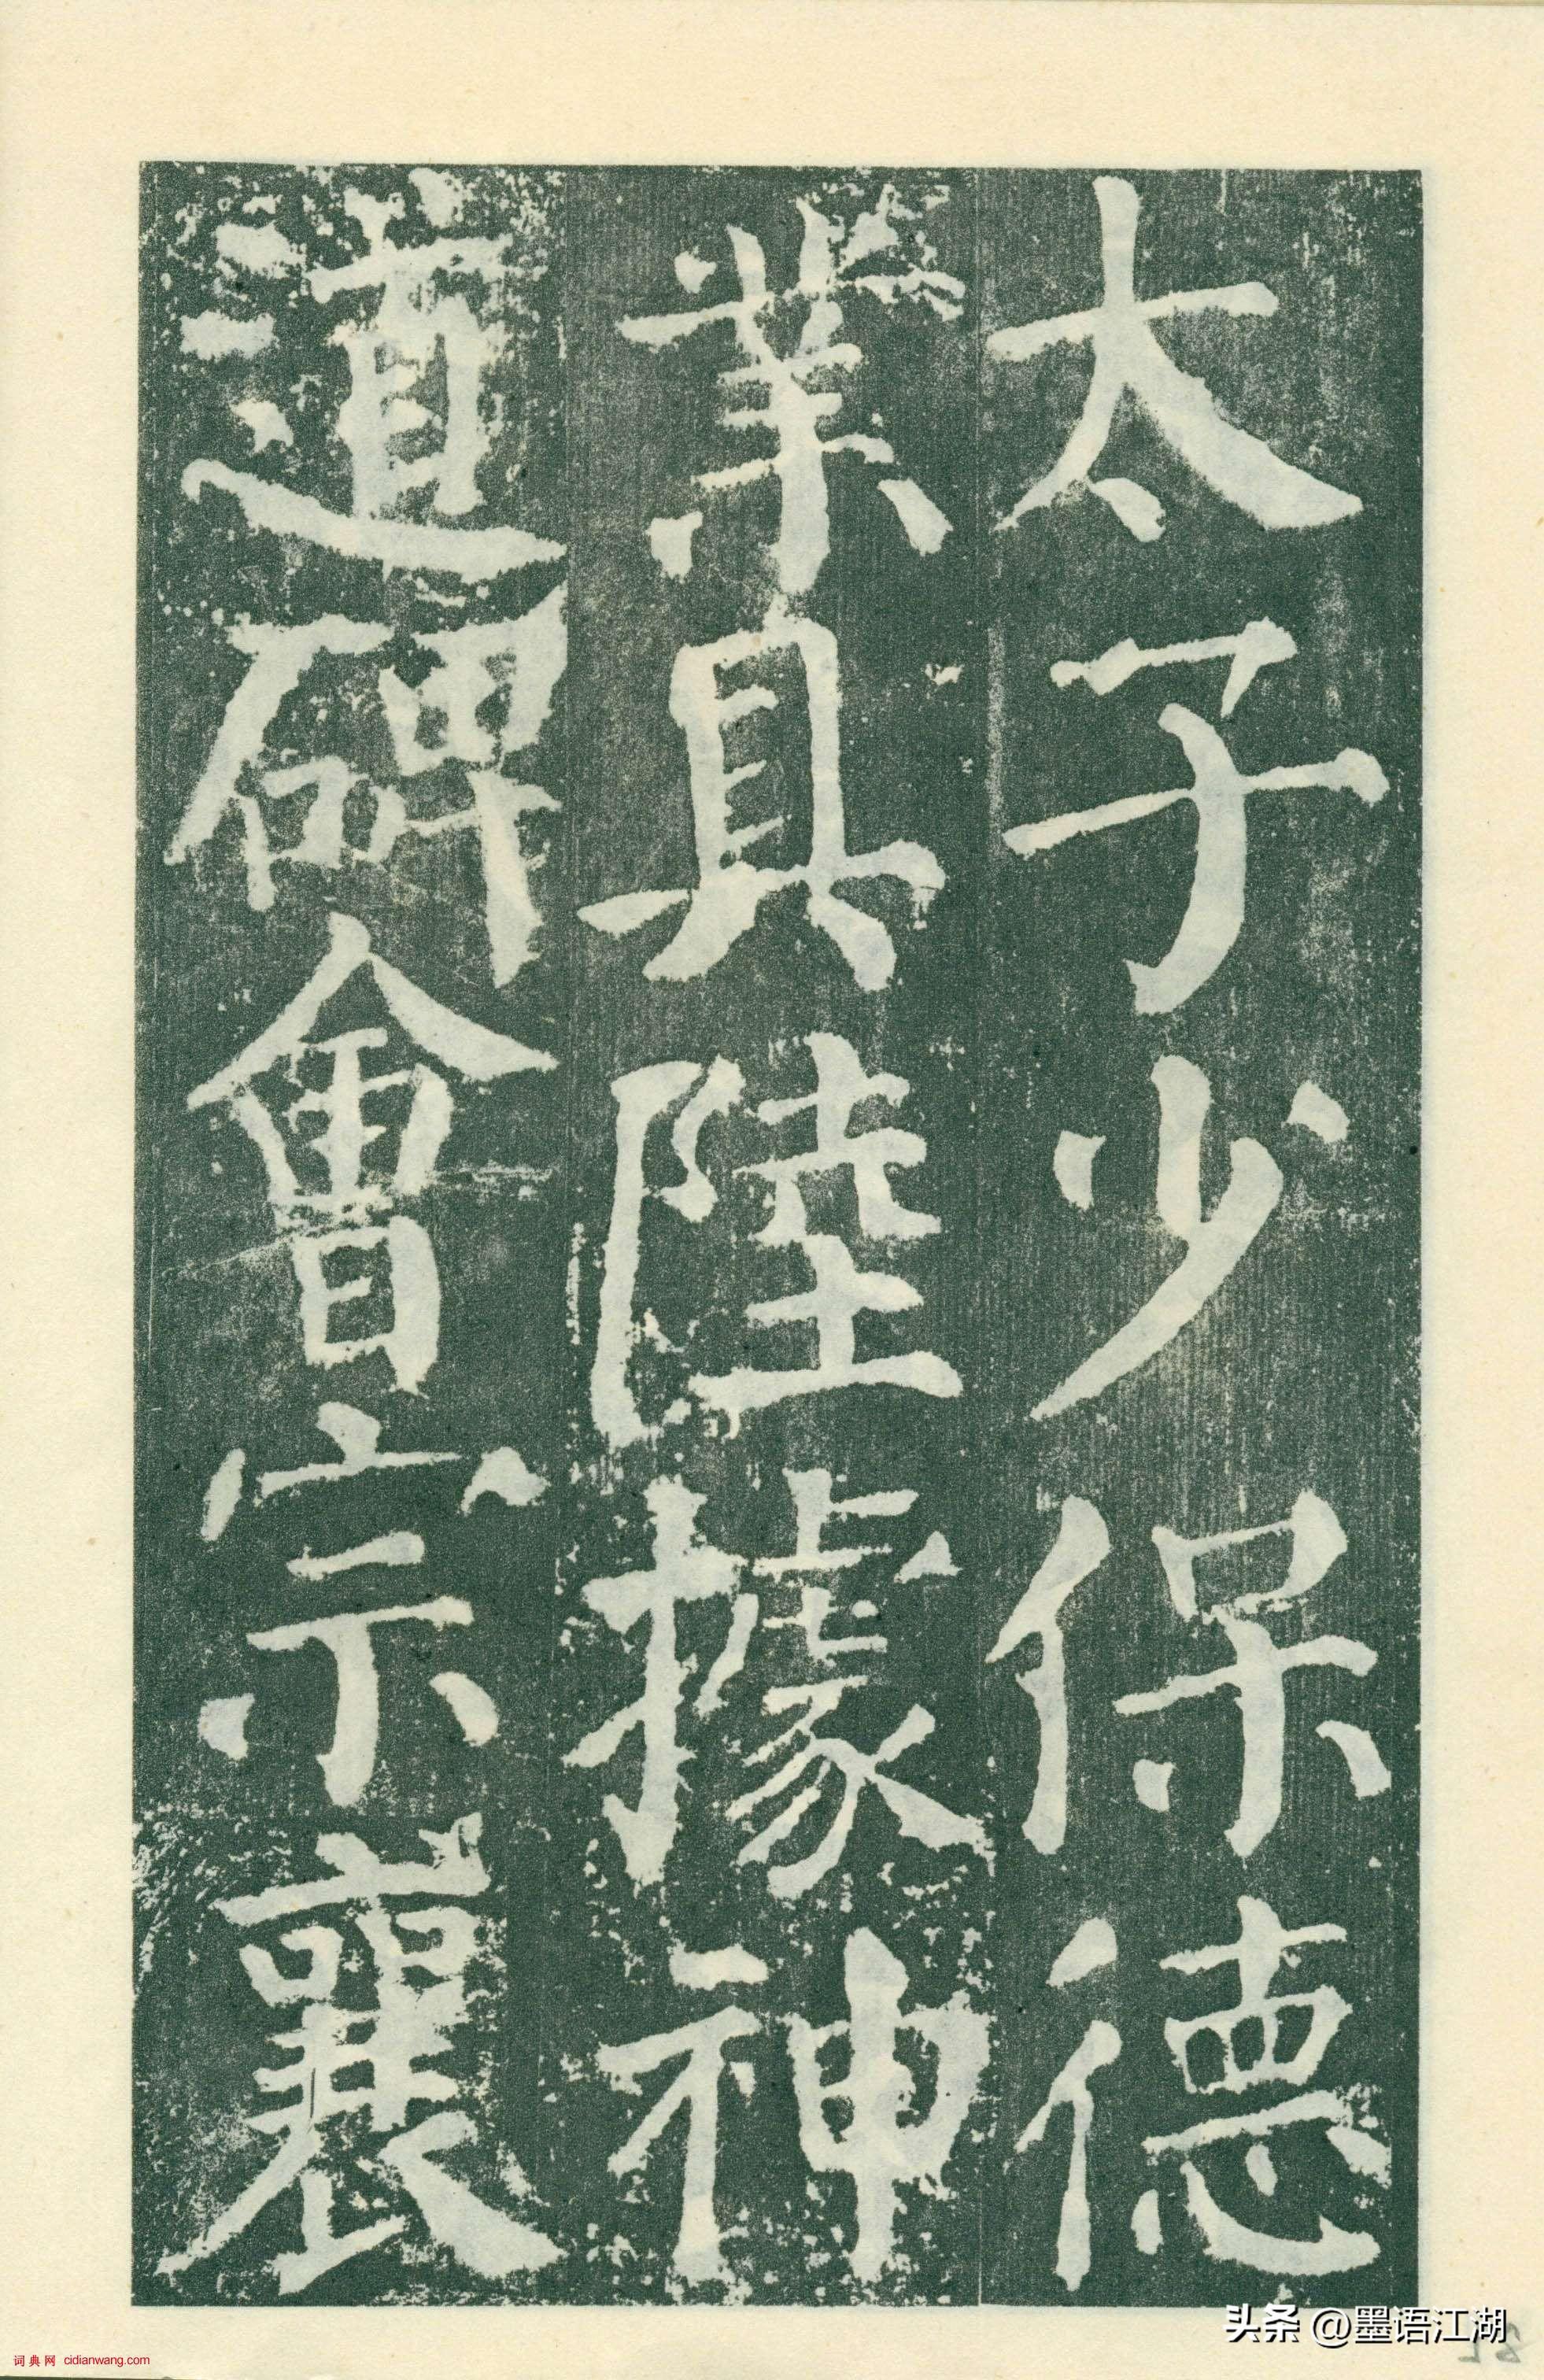 太子少保德
業具陸據神
道碑會宗襄
头条 @墨语江湖
词典网 cidianwang.com